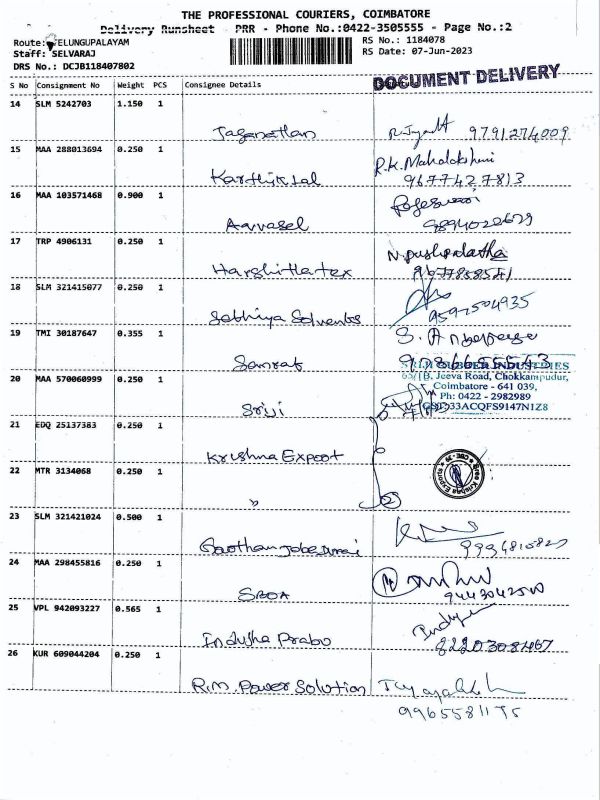 THE PROFESSIONAL COURIERS, COIMBATORE
Delivery Runsheet - PRR - Phone No.:0422-3505555 - Page No.:2
Route: ELUNGUPALAYAM
Staff: SELVARAJ
DRS No.: DCJB118407802
RS No.: 1184078
RS Date: 07-Jun-2023
DOCUMENT DELIVERY
S No Consignment No Weight PCS Consignee Details
14 SLM 5242703 1.150 1
Jaganathan 9791274009
15 MAA 288013694 0.250 1
R.K. Mahalakshmi
Karthik Lal 9677427813
16 MAA 103571468 0.900 1
Rajeswari
Aavasel
17 TRP 4906131 0.250 1
N. pushpalatha
Harshitha tex
18 SLM 321415077 0.250 1
Sathiya Solvents
19 TMI 30187647 0.355 1
Samrat
20 MAA 570060999 0.250 1
SRIJI RUBBER INDUSTRIES
65/1B, Jeeva Road, Chokkampudur,
Coimbatore - 641 039,
Ph: 0422 - 2982989
GST:33ACQFS9147N1Z8
Sriji
21 EDQ 25137383 0.250 1
Krishna Export
22 MTR 3134068 0.250 1
"
Sree Krishna Exports CBE-39
23 SLM 321421024 0.500 1
24 MAA 298455816 0.250 1
25 VPL 942093227 0.565 1
Indusha Prabu
26 KUR 609044204 0.250 1
R.M. Power Solution